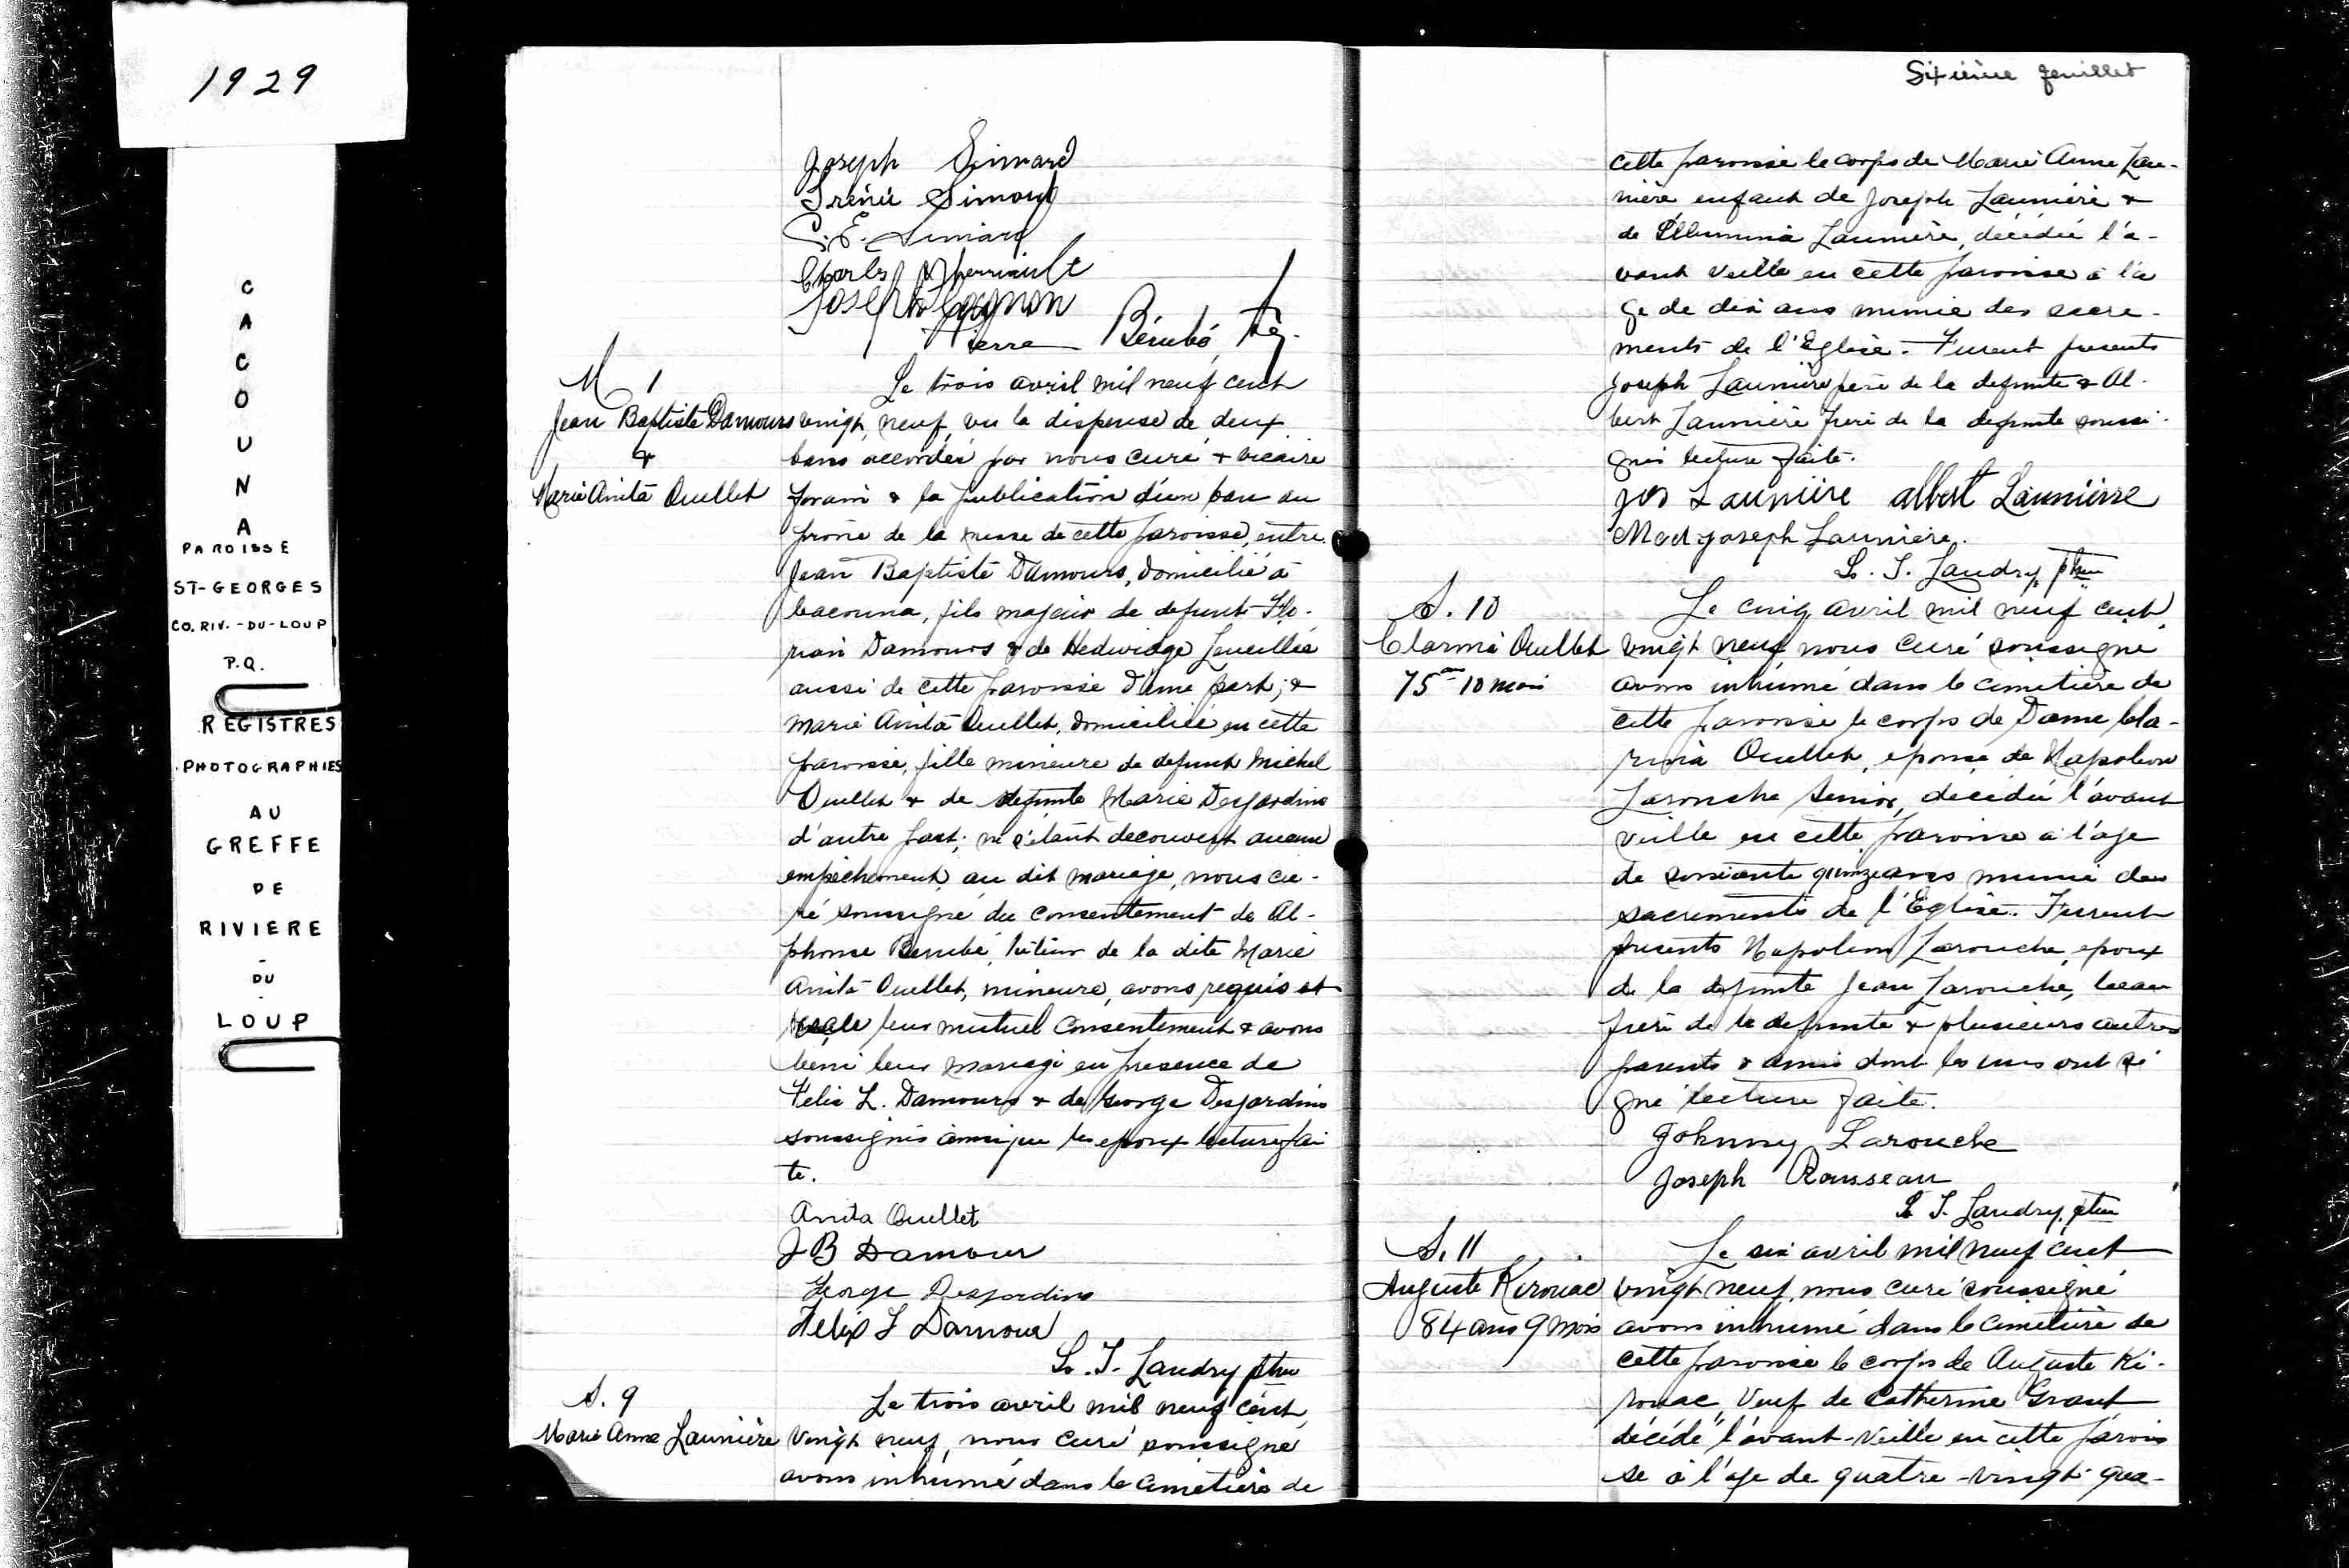 1929
CACOUNA
PAROISSE
ST-GEORGES
CO. RIV.-DU-LOUP
P.Q.
REGISTRES
PHOTOGRAPHIES
AU
GREFFE
DE
RIVIERE
-
DU
-
LOUP
Joseph Simard
Irénée Simard
C. E. Simard
Charles Therriault
Joseph Gagnon
Pierre Bérubé
M 1
Jean Baptiste Damours
&
Marie Anita Ouellet
Le trois avril mil neuf cent
vingt neuf, vu la dispense de deux
bans accordée par nous curé & vicaire
forain & la publication d'un ban au
prône de la messe de cette paroisse, entre
Jean Baptiste Damours, domicilié à
Cacouna, fils majeur de defunt Flo-
rian Damours & de Hedwidge Leveillée
aussi de cette paroisse d'une part; &
Marie Anita Ouellet, domiciliée en cette
paroisse, fille mineure de defunt Michel
Ouellet & de defunte Marie Desjardins
d'autre part; ne s'étant decouvert aucun
empêchement au dit mariage, nous cu-
ré soussigné du consentement de Al-
phonse Berubé, tuteur de la dite Marie
Anita Ouellet, mineure, avons requis et
leur mutuel consentement & avons
beni leur mariage en presence de
Felix L. Damours & de George Desjardins
soussignés ainsi que les epoux lecture fai
te.
Anita Ouellet
J B Damour
George Desjardins
Felix L Damour
L. J. Landry ptre
S. 9
Marie Anne Launière
Le trois avril mil neuf cent
vingt neuf, nous curé soussigné
avons inhumé dans le cimetière de
Sixième feuillet
cette paroisse le corps de Marie Anne Lau-
nière enfant de Joseph Launière &
de Launière, décédée l'a-
vant veille en cette paroisse à l'a
ge de dix ans munie des sacre-
ments de l'Eglise. Furent presents
Joseph Launière père de la defunte & Al-
bert Launière frère de la defunte soussi-
gnés lecture faite.
Jos Launière Albert Launière
Mad Joseph Launière.
L. J. Landry, ptre
S. 10
Clarina Ouellet
75 ans 10 mois
Le cinq avril mil neuf cent
vingt neuf nous curé soussigné
avons inhumé dans le cimetière de
cette paroisse le corps de Dame Cla-
rina Ouellet, epouse de Napoleon
Larouche Senior, decédée l'avant
veille en cette paroisse à l'age
de soixante quinze ans munie des
sacrements de l'Eglise. Furent
presents Napoleon Larouche, epoux
de la defunte Jean Larouche, beau
frère de la defunte & plusieurs autres
parents & amis dont les uns ont si
gné lecture faite.
Johnny Larouche
Joseph Rousseau
L J. Landry, ptre
S. 11
Auguste Kirouac
84 ans 9 mois
Le six avril mil neuf cent
vingt neuf, nous curé soussigné
avons inhumé dans le cimetière de
cette paroisse le corps de Auguste Ki-
rouac, Veuf de Catherine Grant
décédé l'avant-veille en cette parois
se à l'age de quatre-vingt-qua-